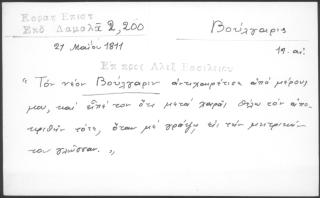 Κοραή Επιστ
Εκδ Δαμαλά 2,200
Βούλγαρις
21 Μαΐου 1811
19. αἰ.
Επ προς Αλεξ Βασιλειου
"Τὸν νέον Βούλγαριν ἀντιχαιρέτισε ἀπὸ μέρους
μου, καὶ εἰπέ τον ὅτι μετὰ χαρᾶς θέλω τὸν ἀπο-
κριθῆν τότε, ὅταν μὲ γράψῃ εἰς τὴν μητρικήν
του γλῶσσαν."